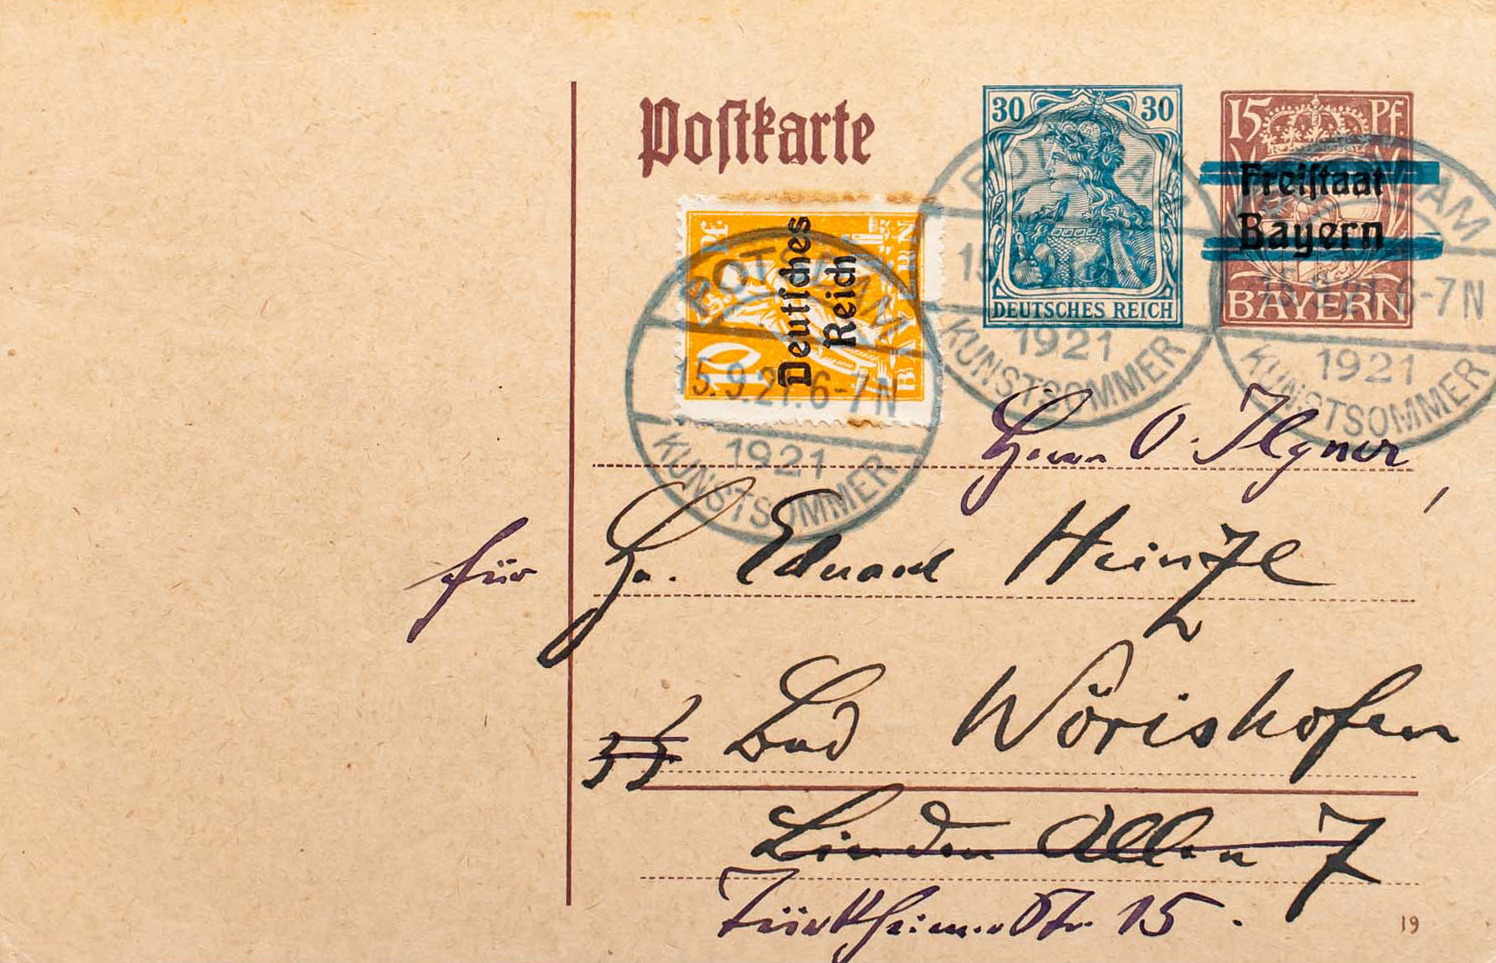 Postkarte
30 30
DEUTSCHES REICH
15 PF
Freistaat
Bayern
BAYERN
10 Pf BAYERN
Deutsches
Reich
POTSDAM
15.9.21.6-7N
1921
KUNSTSOMMER
POTSDAM
15
1921
KUNSTSOMMER
POTSDAM
15.9.21.6-7N
1921
KUNSTSOMMER
Herrn O. Ilgner,
für Hn. Eduard Heinze
Bad Wörishofen
Linden Allee 7
Türkheimer Str. 15.
19